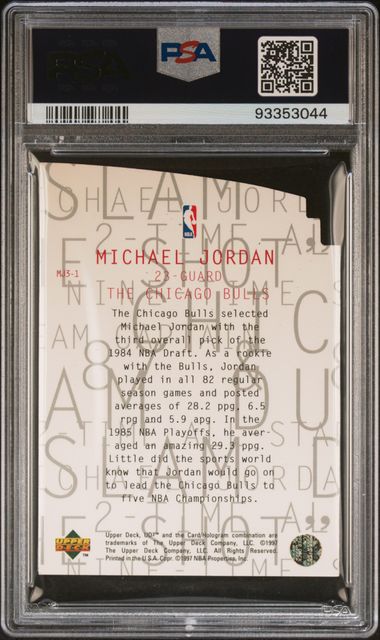 PSA
93353044
NBA
MICHAEL JORDAN
MJ3-1
23-GUARD
THE CHICAGO BULLS
The Chicago Bulls selected
Michael Jordan with the
third overall pick of the
1984 NBA Draft. As a rookie
with the Bulls, Jordan
played in all 82 regular
season games and posted
averages of 28.2 ppg, 6.5
rpg and 5.9 apg. In the
1985 NBA Playoffs, he aver-
aged an amazing 29.3 ppg.
Little did the sports world
know that Jordan would go on
to lead the Chicago Bulls to
five NBA Championships.
UPPER
DECK
TM
Upper Deck, UD3™ and the Card/Hologram combination are
trademarks of The Upper Deck Company, LLC. ©1997
The Upper Deck Company, LLC. All Rights Reserved.
Printed in the U.S.A. Copr. ©1997 NBA Properties, Inc.